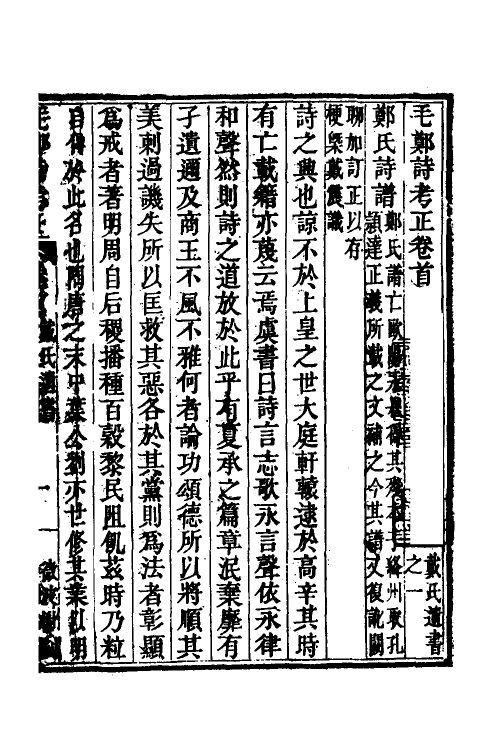 毛鄭詩考正卷首
戴氏遺書
之一
鄭氏詩譜
鄭氏譜亡歐陽其殘本于絳州取孔
穎達正義所載之文補之今其譜又復訛闕
聊加訂正以存
梗槩戴震識
詩之興也諒不於上皇之世大庭軒轅逮於高辛其時
有亡載籍亦蔑云焉虞書曰詩言志歌永言聲依永律
和聲然則詩之道放於此乎有夏承之篇章泯棄靡有
孑遺邇及商王不風不雅何者論功頌德所以將順其
美刺過譏失所以匡救其惡各於其黨則爲法者彰顯
爲戒者著明周自后稷播種百穀黎民阻飢茲時乃粒
自傳於此名也陶唐之末中葉公劉亦世修其業以明
毛鄭詩考正
戴氏遺書
一